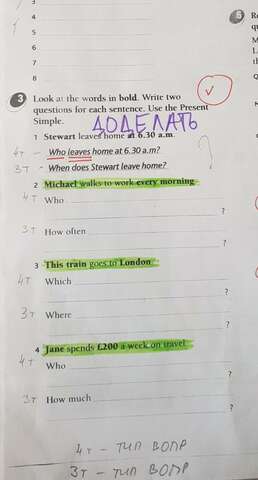 4
5
6
7
8
5
3 Look at the words in bold. Write two
questions for each sentence. Use the Present
Simple.
ДОДЕЛАТЬ
1 Stewart leaves home at 6.30 a.m.
4т - Who leaves home at 6.30 a.m?
3т - When does Stewart leave home?
?
2 Michael walks to work every morning
4т Who
?
3т How often
?
3 This train goes to London
4т Which
?
3т Where
?
4 Jane spends £200 a week on travel
4т Who
?
3т How much
?
4т - тип вопр
3т - тип вопр